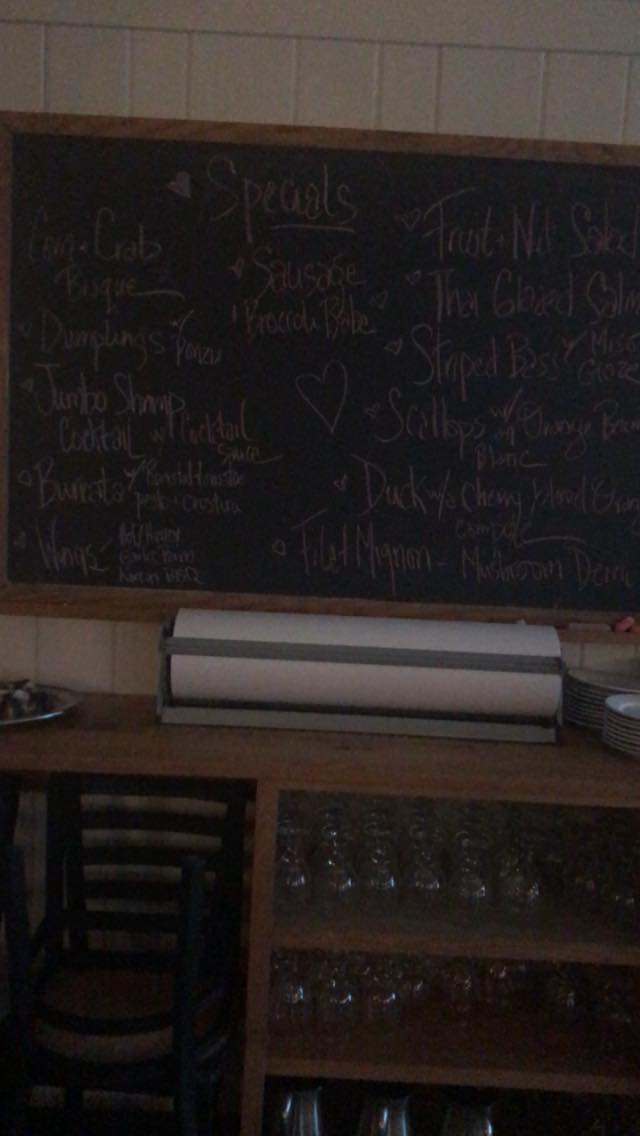 Specials
Corn + Crab
Bisque
Dumplings w/ Ponzu
Jumbo Shrimp
Cocktail w/ Cocktail
Sauce
Burrata w/
pesto + crostini
Wings
Garlic Parm
Korean BBQ
Sausage
Broccoli Rabe
Fruit + Nut Salad
Thai Glazed
Striped Bass w/ Miso
Glaze
Scallops w/ Orange
Blanc
Duck w/ a Cherry Blood
Filet Mignon - Mushroom Demi